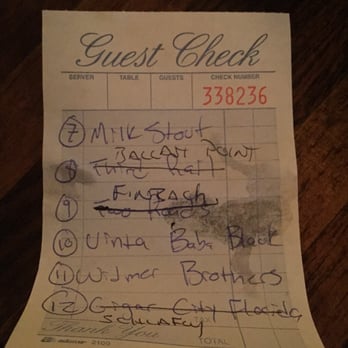 Guest Check
SERVER TABLE GUESTS CHECK NUMBER
338236
7 Milk Stout
BALLAST POINT
8 Third Rail
FINBACH
9 Two Roads
10 Uinta Baba Black
11 Widmer Brothers
12 Cigar City Florida
SCHLAFLY
Thank You TOTAL
adams 2100